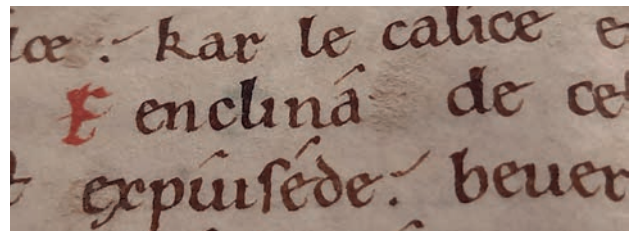 ice : kar le calice e
E encliná de ce
expúiséde : beuer